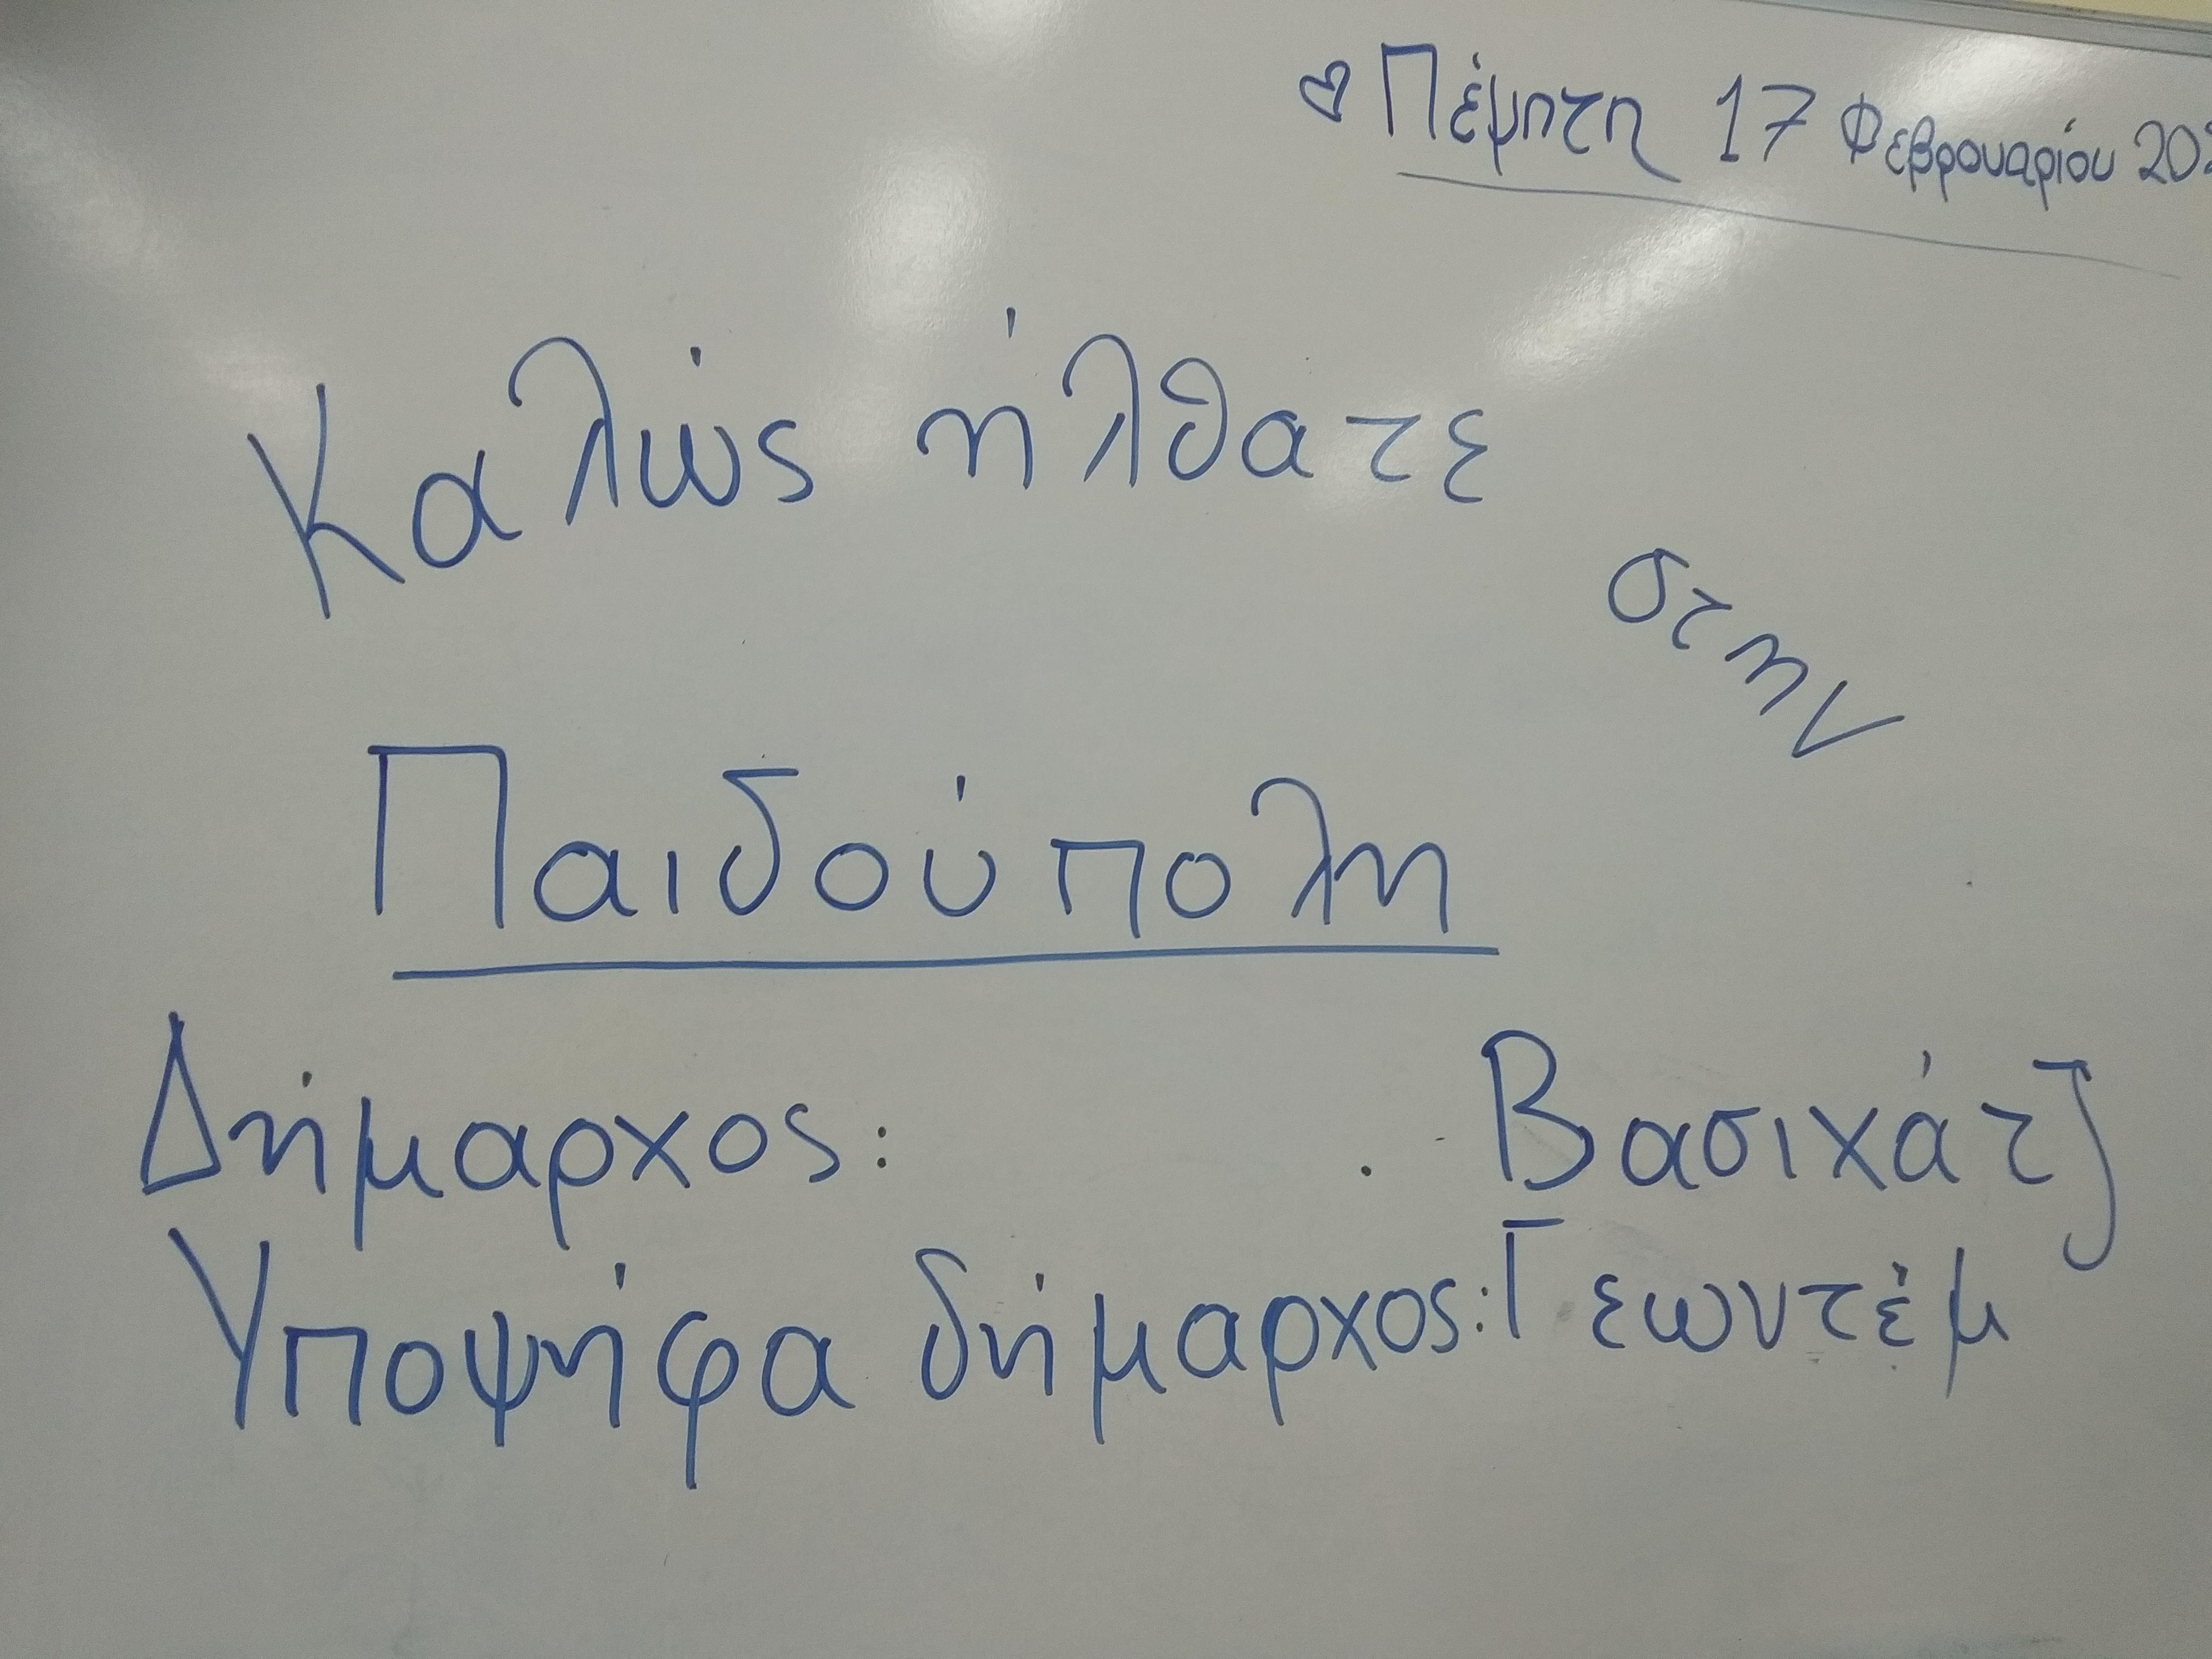 ♡ Πέμπτη 17 Φεβρουαρίου
Καλώς ήλθατε
στην
Παιδούπολη
Δήμαρχος: Βασιχάτζ
Υποψήφα δήμαρχος: Γεωντέμ